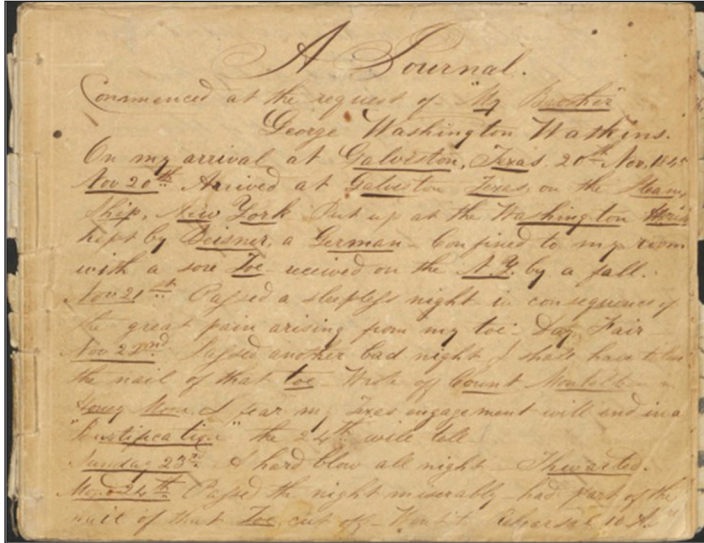 A Journal.
Commenced at the request of "My Brother"
George Washington Watkins.
On my arrival at Galveston, Texas. 20th Nov. 1845
Nov 20th. Arrived at Galveston Texas, on the Steam
Ship, New York Put up at the Washington
kept by Beisner, a German - Confined to my room
with a sore Toe - received on the N.Y. by a fall.
Nov 21st. Passed a sleepless night in consequence of
the great pain arising from my toe - Day Fair -
Nov 22nd. Passed another bad night I shall have to
the nail of that toe - Wrote of Count
Honey Moon. I fear my Texas engagement will end in a
"" the 24th will tell
Sunday 23rd. A hard blow all night - Thwarted.
24th. Passed the night miserably had part of the
nail of that Toe, cut off - Rehearsal 10 A.